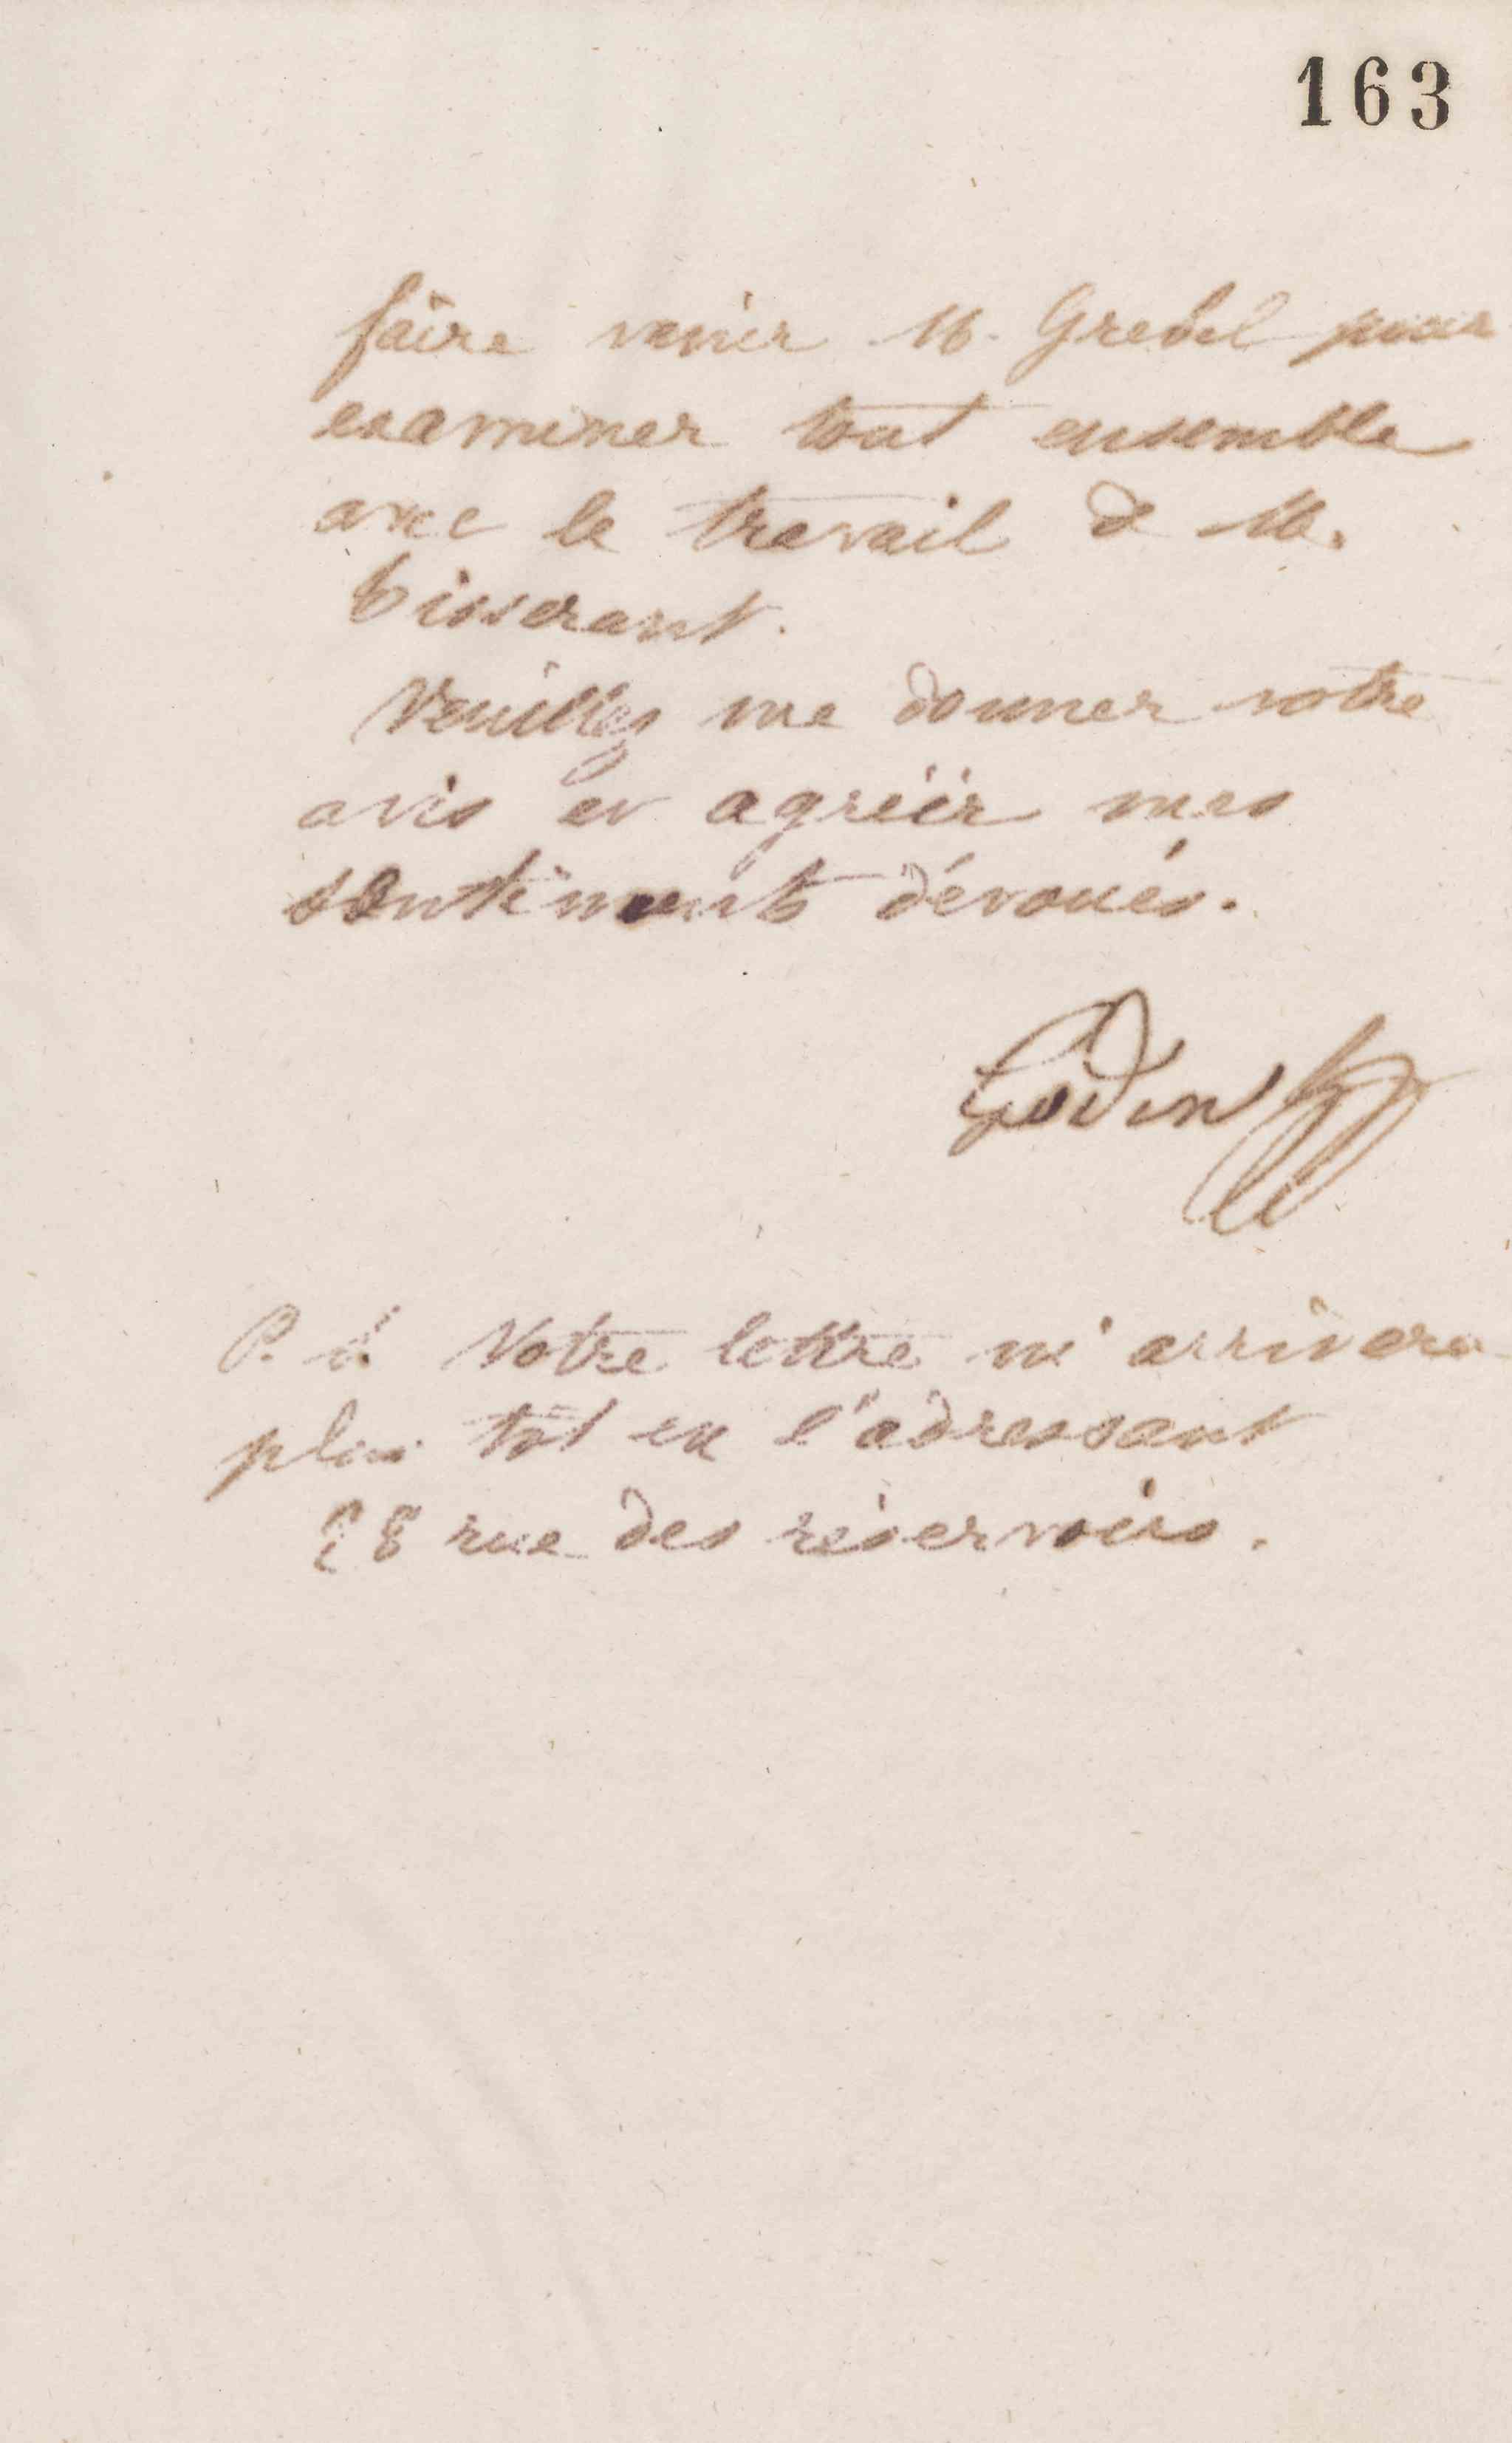 163
faire venir M. Grebel pour
examiner tout ensemble
avec le travail de M.
tisserant.
Veuillez me donner votre
avis et agréer mes
sentiments dévoués.
Godin
P. S. Votre lettre m'arrivera
plus tôt en l'adressant
28 rue des réservoirs.